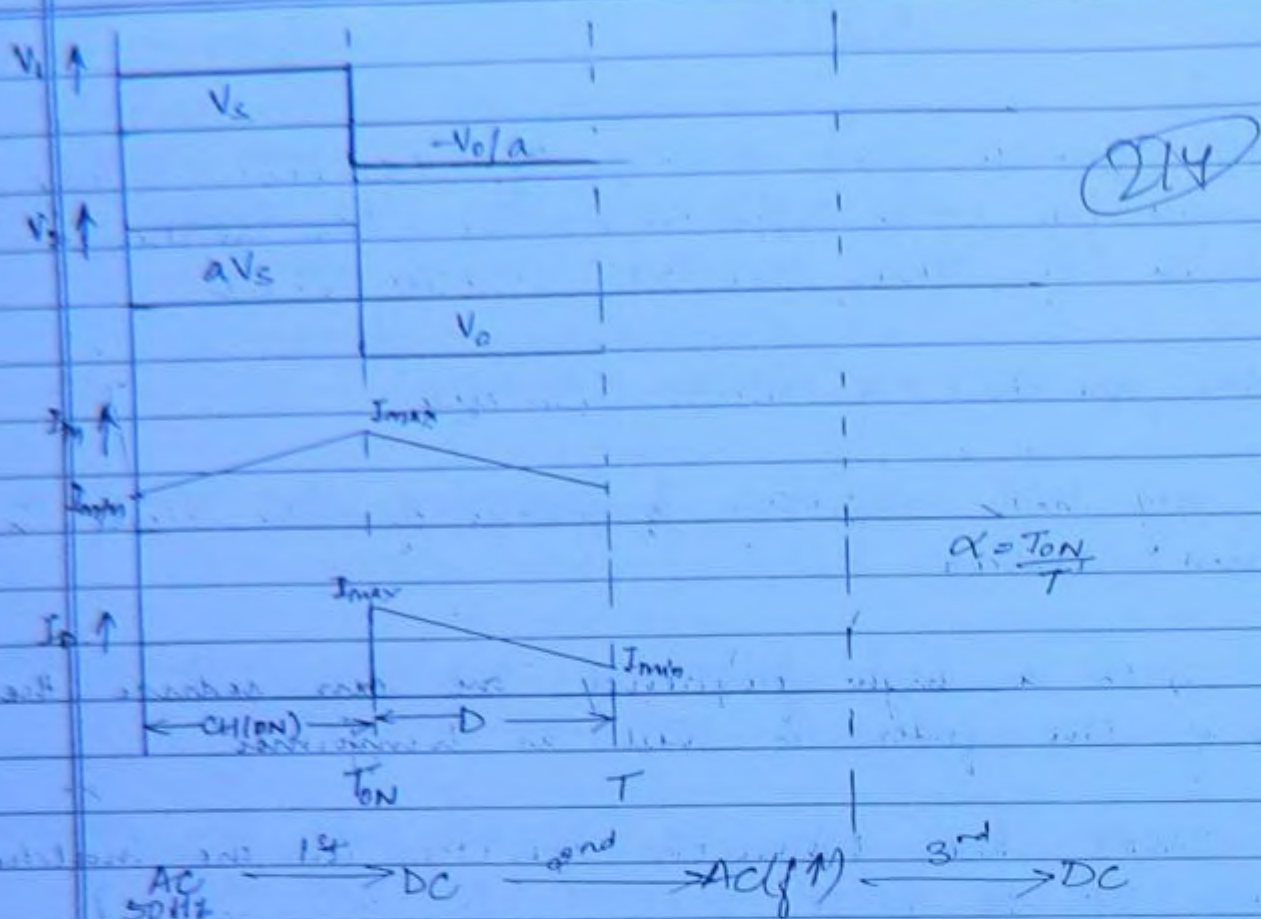 V₁ ↑
Vs
-V₀/a
214
V₂ ↑
aVs
V₀
Im ↑
Imax
Imin
α = TON/T
Imax
ID ↑
Imin
CH(ON) D
TON T
AC 1st DC 2nd AC(f↑) 3rd DC
50HZ